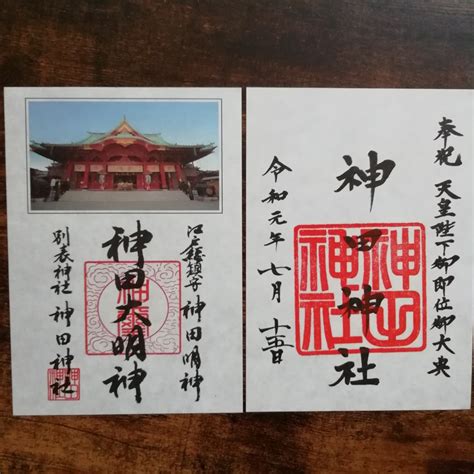 奉祝 天皇陛下御即位御大典
神田神社
神田
神社
令和元年七月十五日
江戸総鎮守 神田明神
神田大明神
別表神社 神田神社